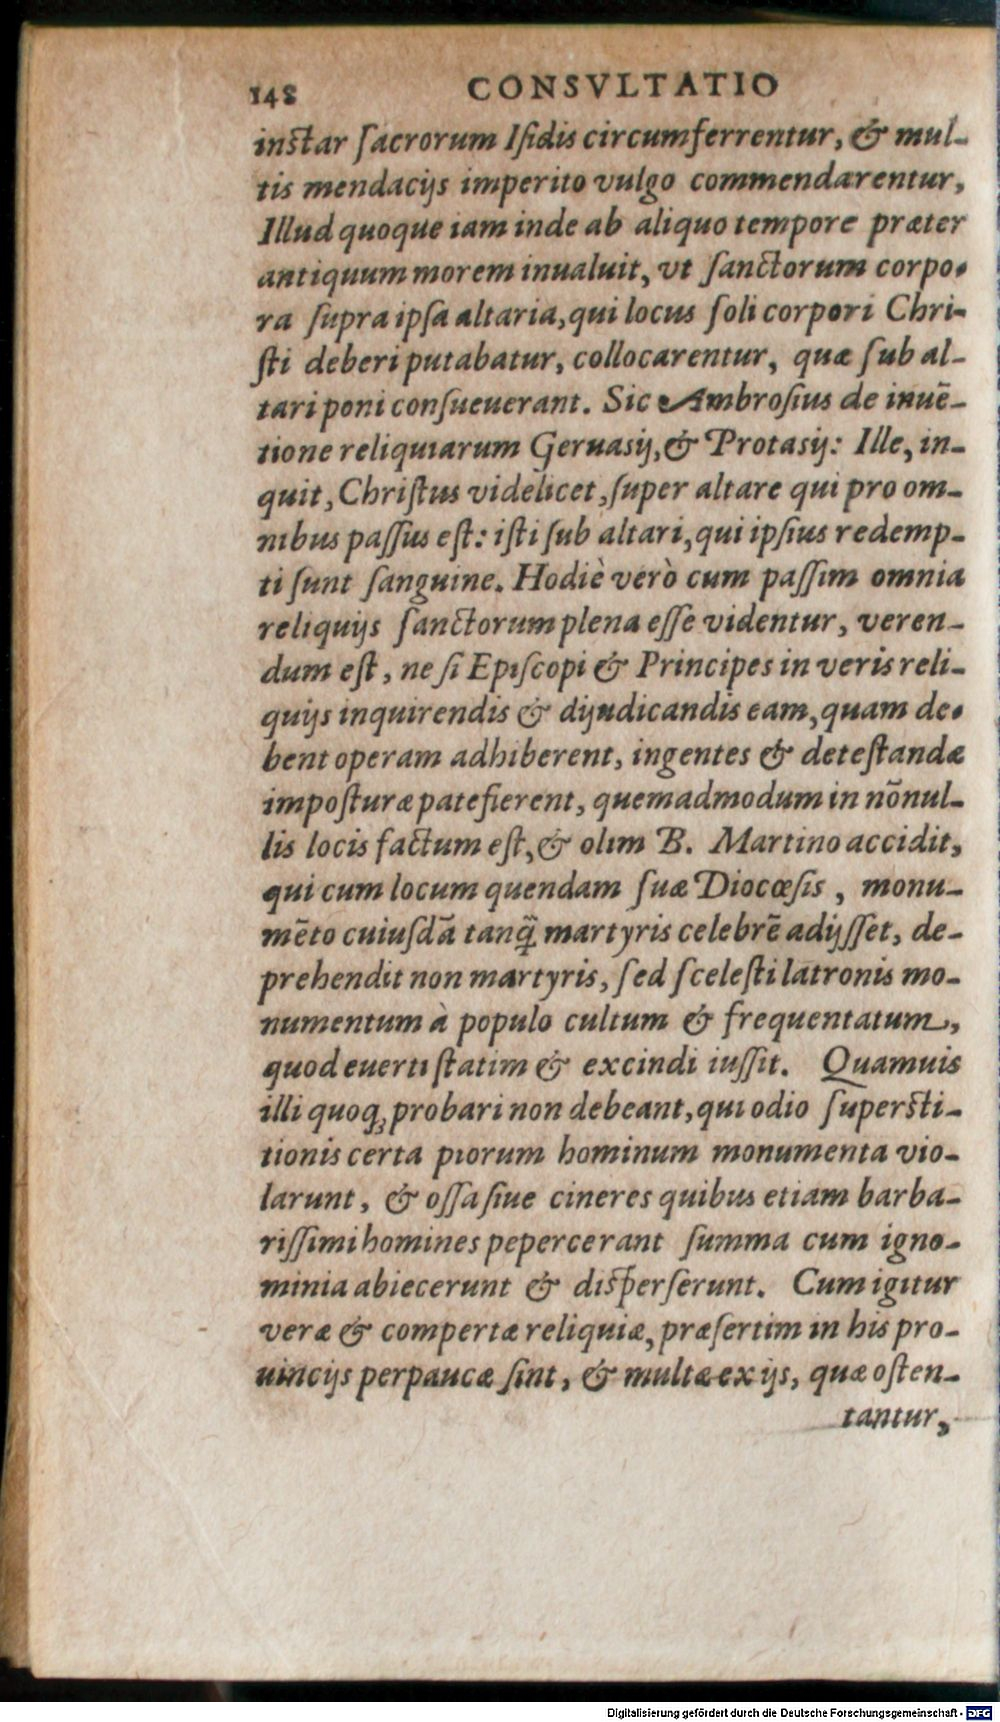 148 CONSVLTATIO
inſtar ſacrorum Iſidis circumferrentur, & mul-
tis mendacijs imperito vulgo commendarentur,
Illud quoque iam inde ab aliquo tempore præter
antiquum morem inualuit, vt ſanctorum corpo-
ra ſupra ipſa altaria, qui locus ſoli corpori Chri-
ſti deberi putabatur, collocarentur, quæ ſub al-
tari poni conſueuerant. Sic Ambroſius de inuẽ-
tione reliquiarum Geruasij, & Protasij: Ille, in-
quit, Chriſtus videlicet, ſuper altare qui pro om-
nibus paſſus eſt: iſti ſub altari, qui ipſius redemp-
ti ſunt ſanguine. Hodiè verò cum paſſim omnia
reliquijs ſanctorum plena eſſe videntur, veren-
dum eſt, ne ſi Epiſcopi & Principes in veris reli-
quijs inquirendis & dijudicandis eam, quam de-
bent operam adhiberent, ingentes & deteſtandæ
impoſturæ patefierent, quemadmodum in nõnul-
lis locis factum eſt, & olim B. Martino accidit,
qui cum locum quendam ſuæ Diocœſis, monu-
mẽto cuiuſdã tanq̃ martyris celebrẽ adijſſet, de-
prehendit non martyris, ſed ſceleſti latronis mo-
numentum à populo cultum & frequentatum,
quod euerti ſtatim & excindi iuſſit. Quamuis
illi quoq; probari non debeant, qui odio ſuperſti-
tionis certa piorum hominum monumenta vio-
larunt, & oſſa ſiue cineres quibus etiam barba-
riſſimi homines pepercerant ſumma cum igno-
minia abiecerunt & diſperſerunt. Cum igitur
veræ & compertæ reliquiæ, præſertim in his pro-
uincijs perpaucæ ſint, & multæ ex ijs, quæ oſten-
tantur,
Digitalisierung gefördert durch die Deutsche Forschungsgemeinschaft - DFG